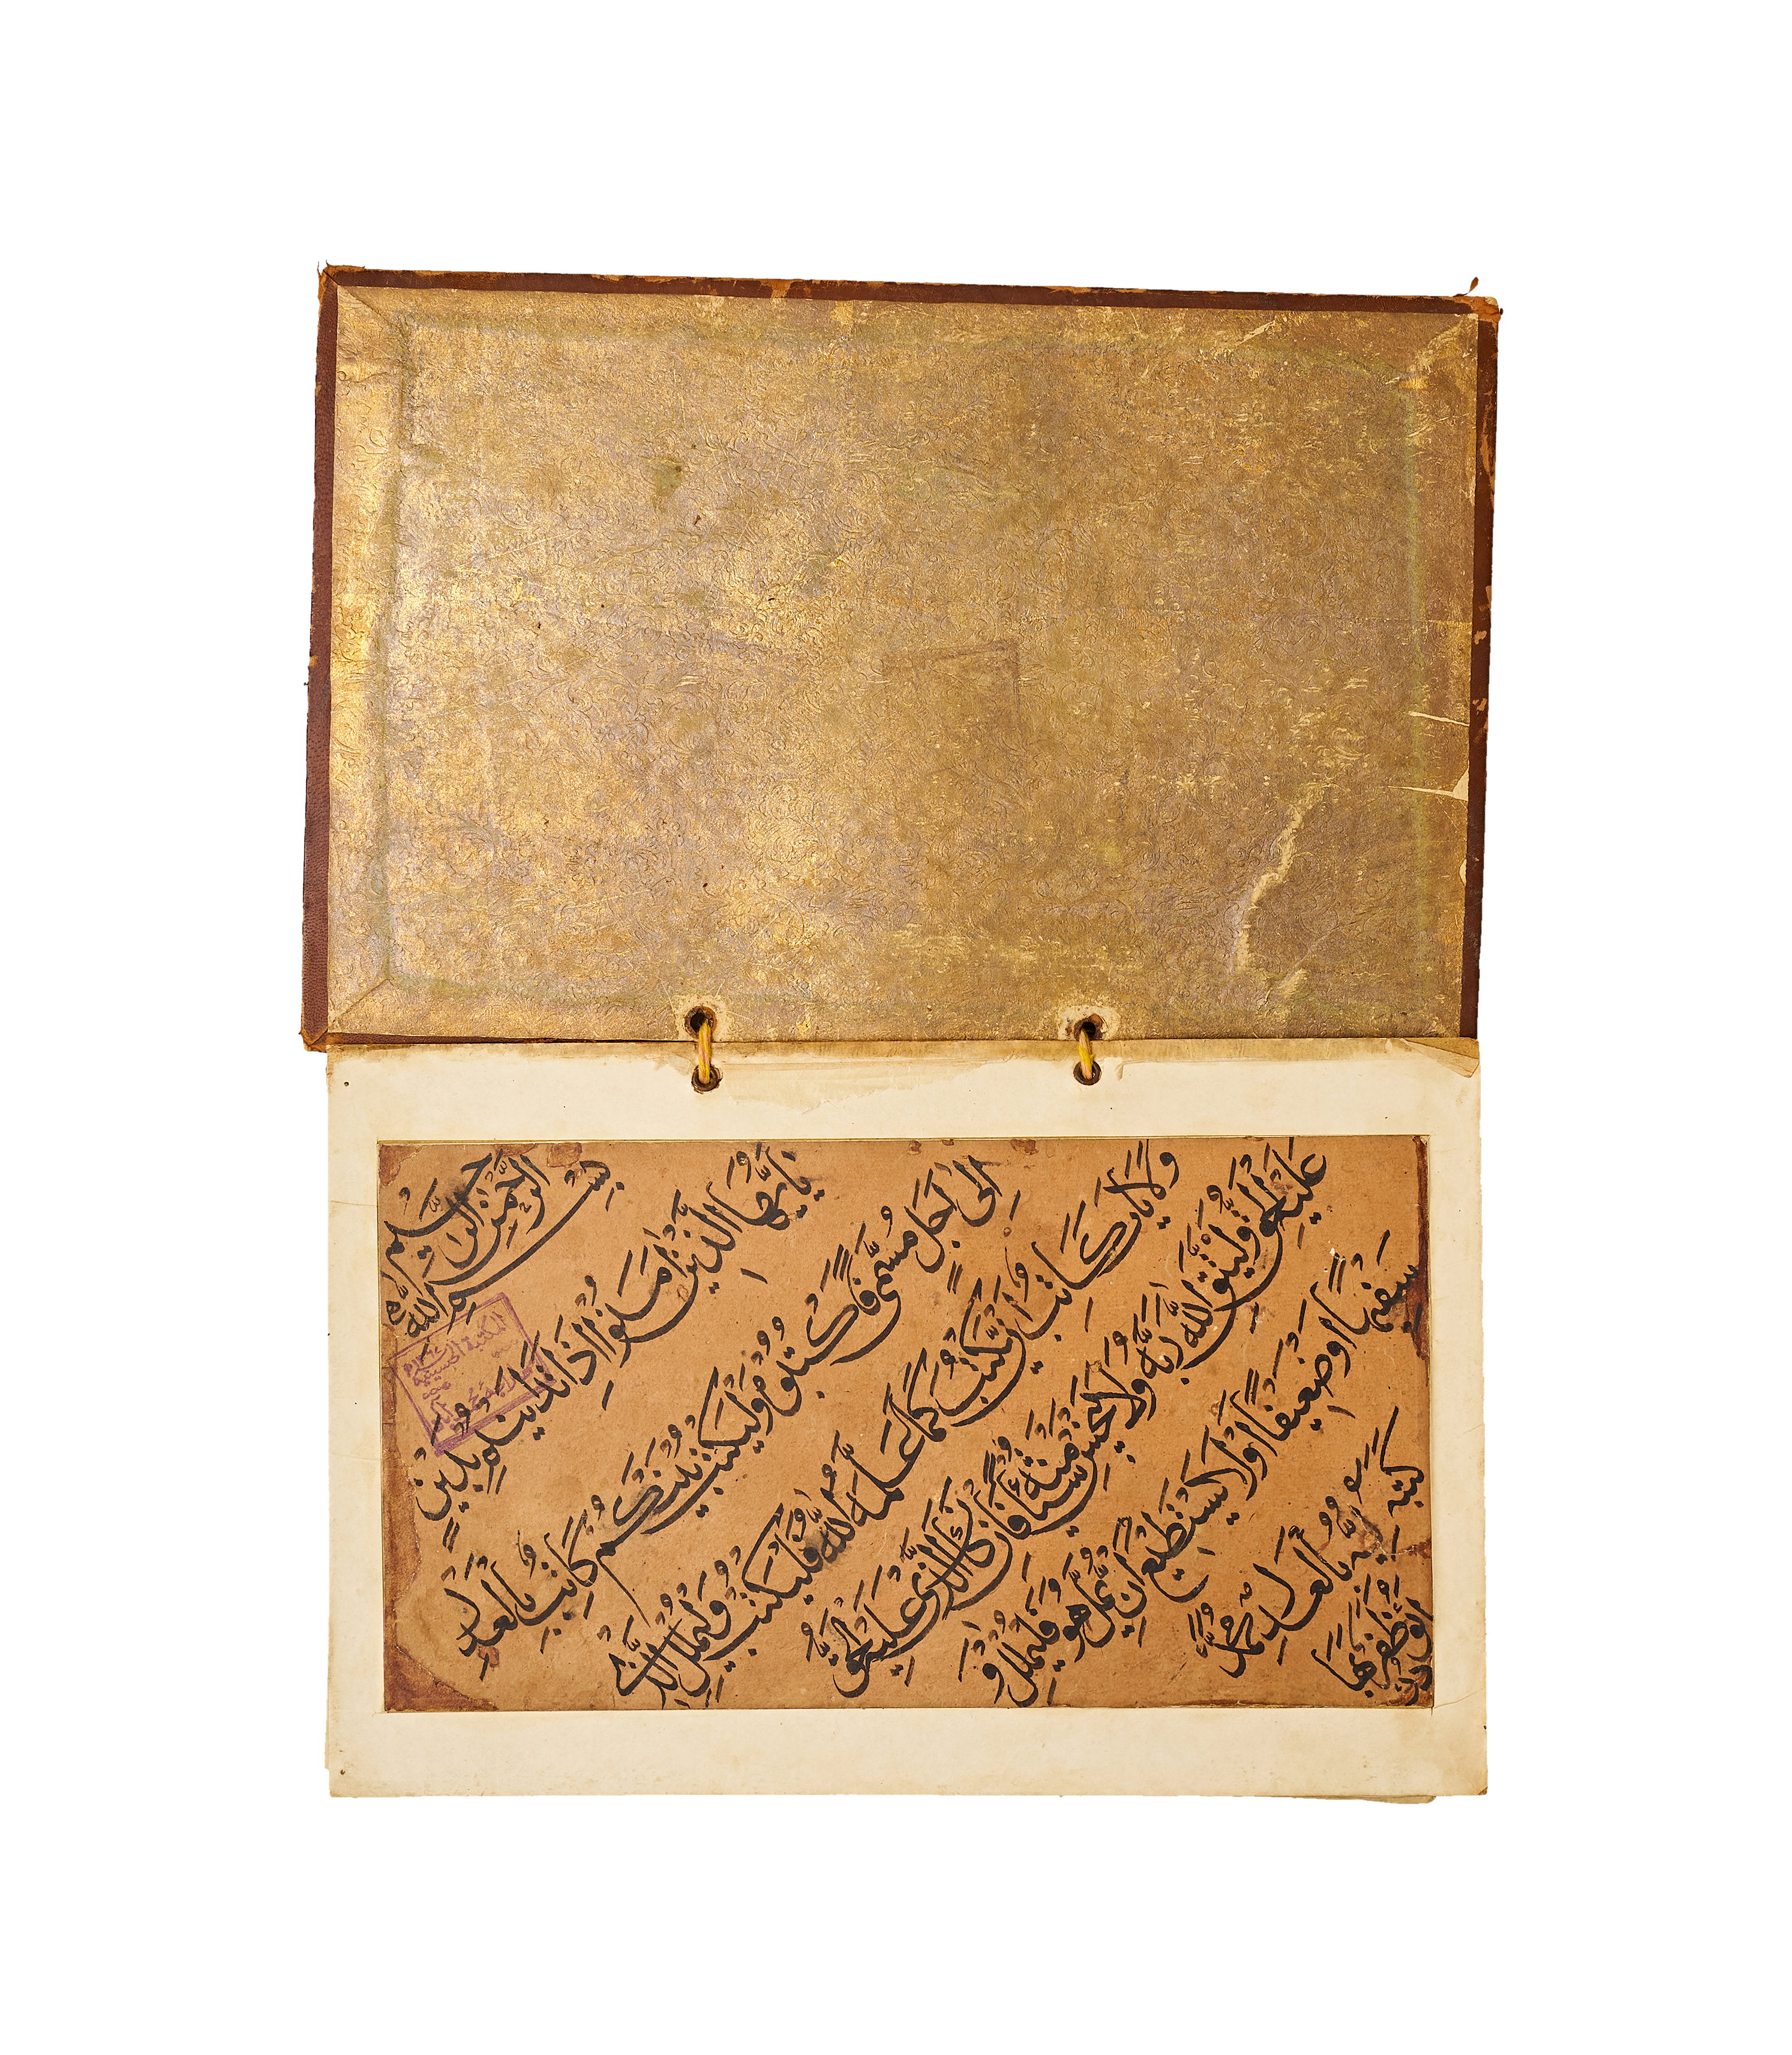 بِسْمِ اللهِ الرَّحْمٰنِ الرَّحِيْمِ
يٰاَيُّهَا الَّذِيْنَ اٰمَنُوْا اِذَا تَدَايَنْتُمْ بِدَيْنٍ
اِلٰى اَجَلٍ مُسَمًّى فَاكْتُبُوْهُ وَلْيَكْتُبْ بَيْنَكُمْ كَاتِبٌ بِالْعَدْلِ
وَلَا يَاْبَ كَاتِبٌ اَنْ يَّكْتُبَ كَمَا عَلَّمَهُ اللّٰهُ فَلْيَكْتُبْ وَلْيُمْلِلِ الَّذِيْ
عَلَيْهِ الْحَقُّ وَلْيَتَّقِ اللّٰهَ رَبَّهُ وَلَا يَبْخَسْ مِنْهُ شَيْئًا فَاِنْ كَانَ الَّذِيْ عَلَيْهِ الْحَقُّ
سَفِيْهًا اَوْ ضَعِيْفًا اَوْ لَا يَسْتَطِيْعُ اَنْ يُّمِلَّ هُوَ فَلْيُمْلِلْ وَ
لِيُّهُ بِالْعَدْلِ محمد
كتبه
ابو ظفر بهادر
المكتبة الحسينية